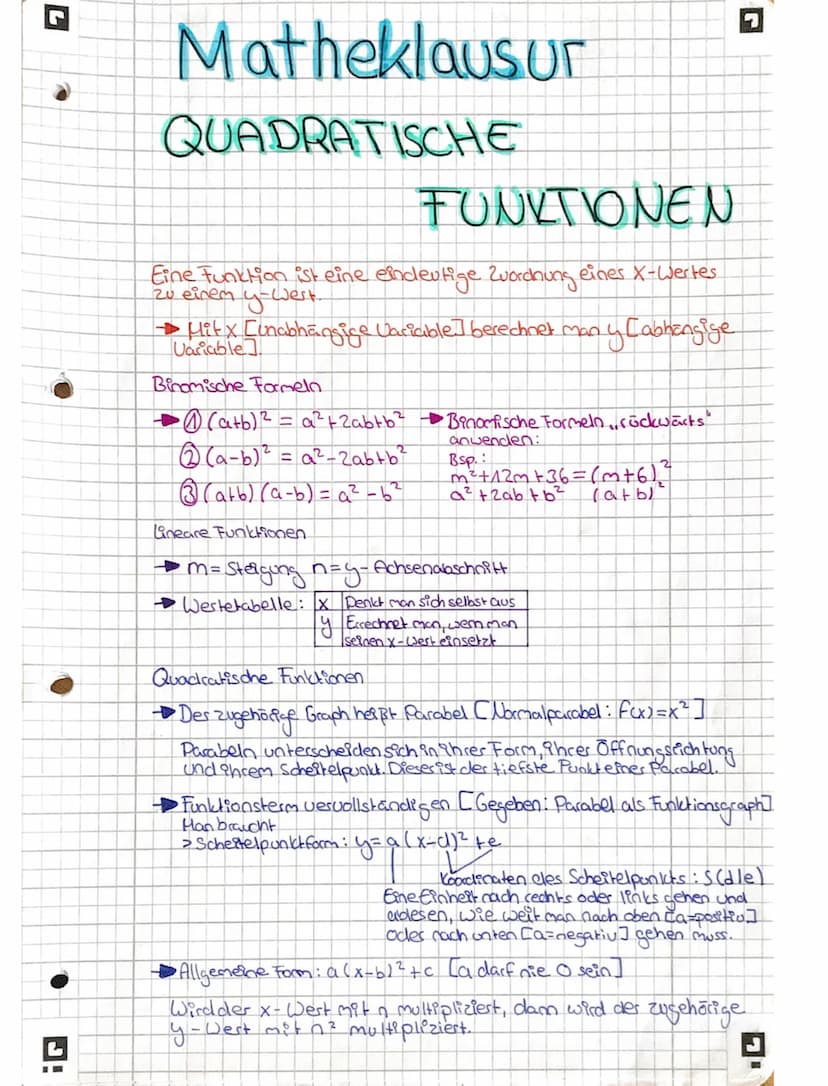 Matheklausur
QUADRATISCHE
FUNKTIONEN
Eine Funktion ist eine eindeutige Zuordnung eines x-Wertes
zu einem y-Wert.
→ Mit x [unabhängige Variable] berechnet man y [abhängige
Variable].
Binomische Formeln
→ ① (a+b)² = a²+2ab+b² → Binomische Formeln „rückwärts“
anwenden:
② (a-b)² = a²-2ab+b² Bsp.:
m²+12m+36=(m+6)²
③ (a+b) (a-b) = a²-b² a²+2ab+b² (a+b)²
Lineare Funktionen
→ m= Steigung n=y-Achsenabschnitt
→ Wertetabelle: x Denkt man sich selbst aus
y Errechnet man, wenn man
seinen x-Wert einsetzt
Quadratische Funktionen
→ Der zugehörige Graph heißt Parabel [Normalparabel: f(x)=x²]
Parabeln unterscheiden sich in ihrer Form, ihrer Öffnungsrichtung
und ihrem Scheitelpunkt. Dieser ist der tiefste Punkt einer Parabel.
→ Funktionsterm vervollständigen [Gegeben: Parabel als Funktionsgraph]
Man braucht
> Scheitelpunktform: y=a(x-d)²+e
Koordinaten des Scheitelpunkts: S(d/e)
Eine Einheit nach rechts oder links gehen und
ablesen, wie weit man nach oben [a=positiv]
oder nach unten [a=negativ] gehen muss.
→ Allgemeine Form: a(x-b)²+c [a darf nie 0 sein]
Wird der x-Wert mit n multipliziert, dann wird der zugehörige
y-Wert mit n² multipliziert.